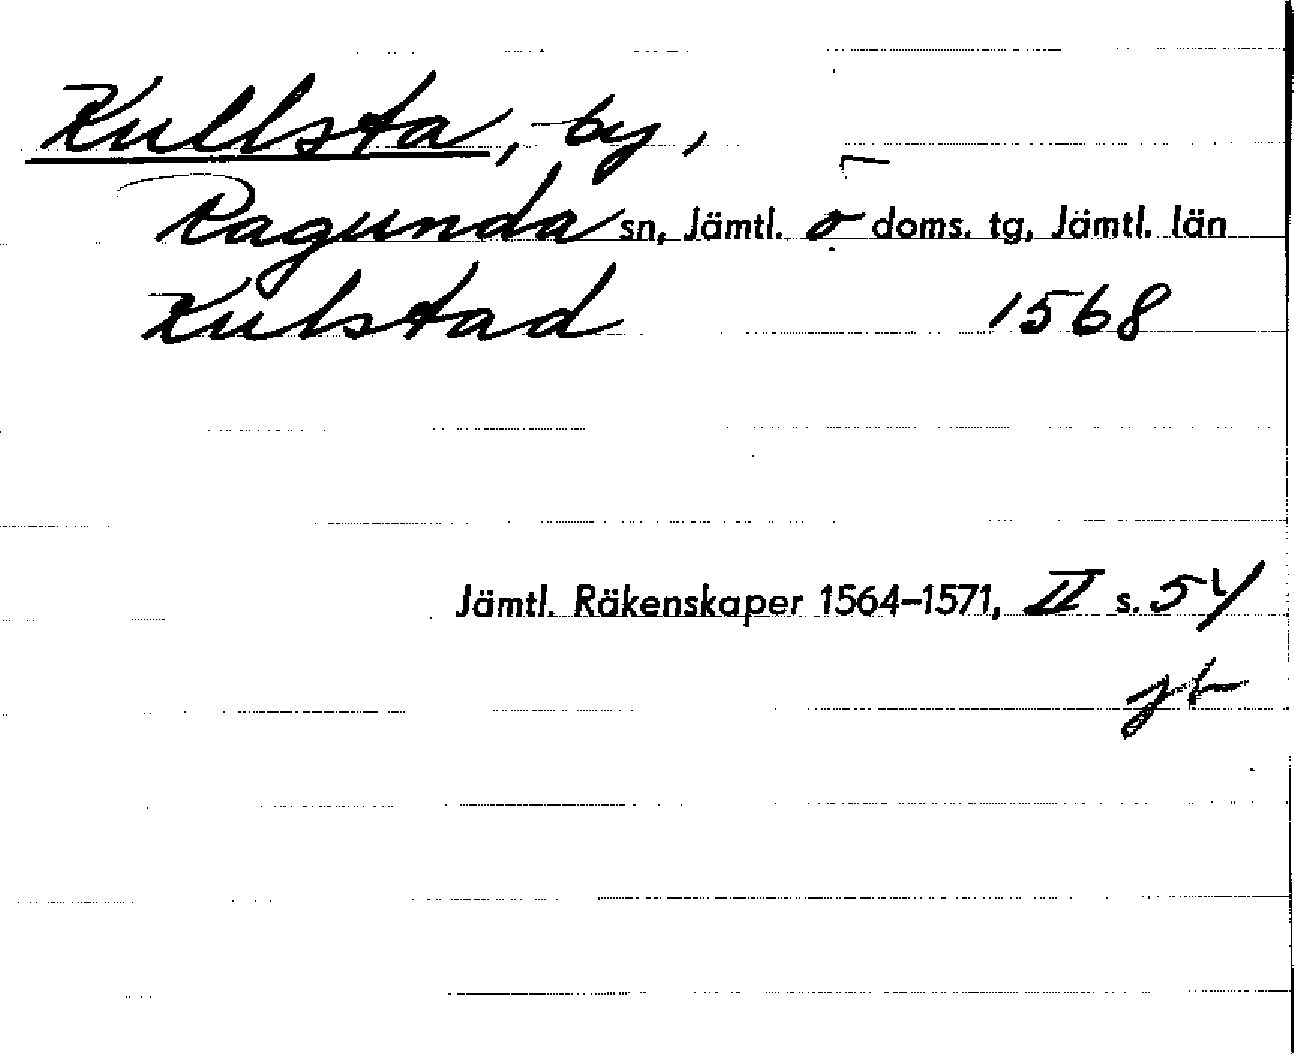 Kullsta, by,
Ragunda sn, Jämtl. ö doms. tg, Jämtl. län
Kulstad 1568
Jämtl. Räkenskaper 1564–1571, II s. 54